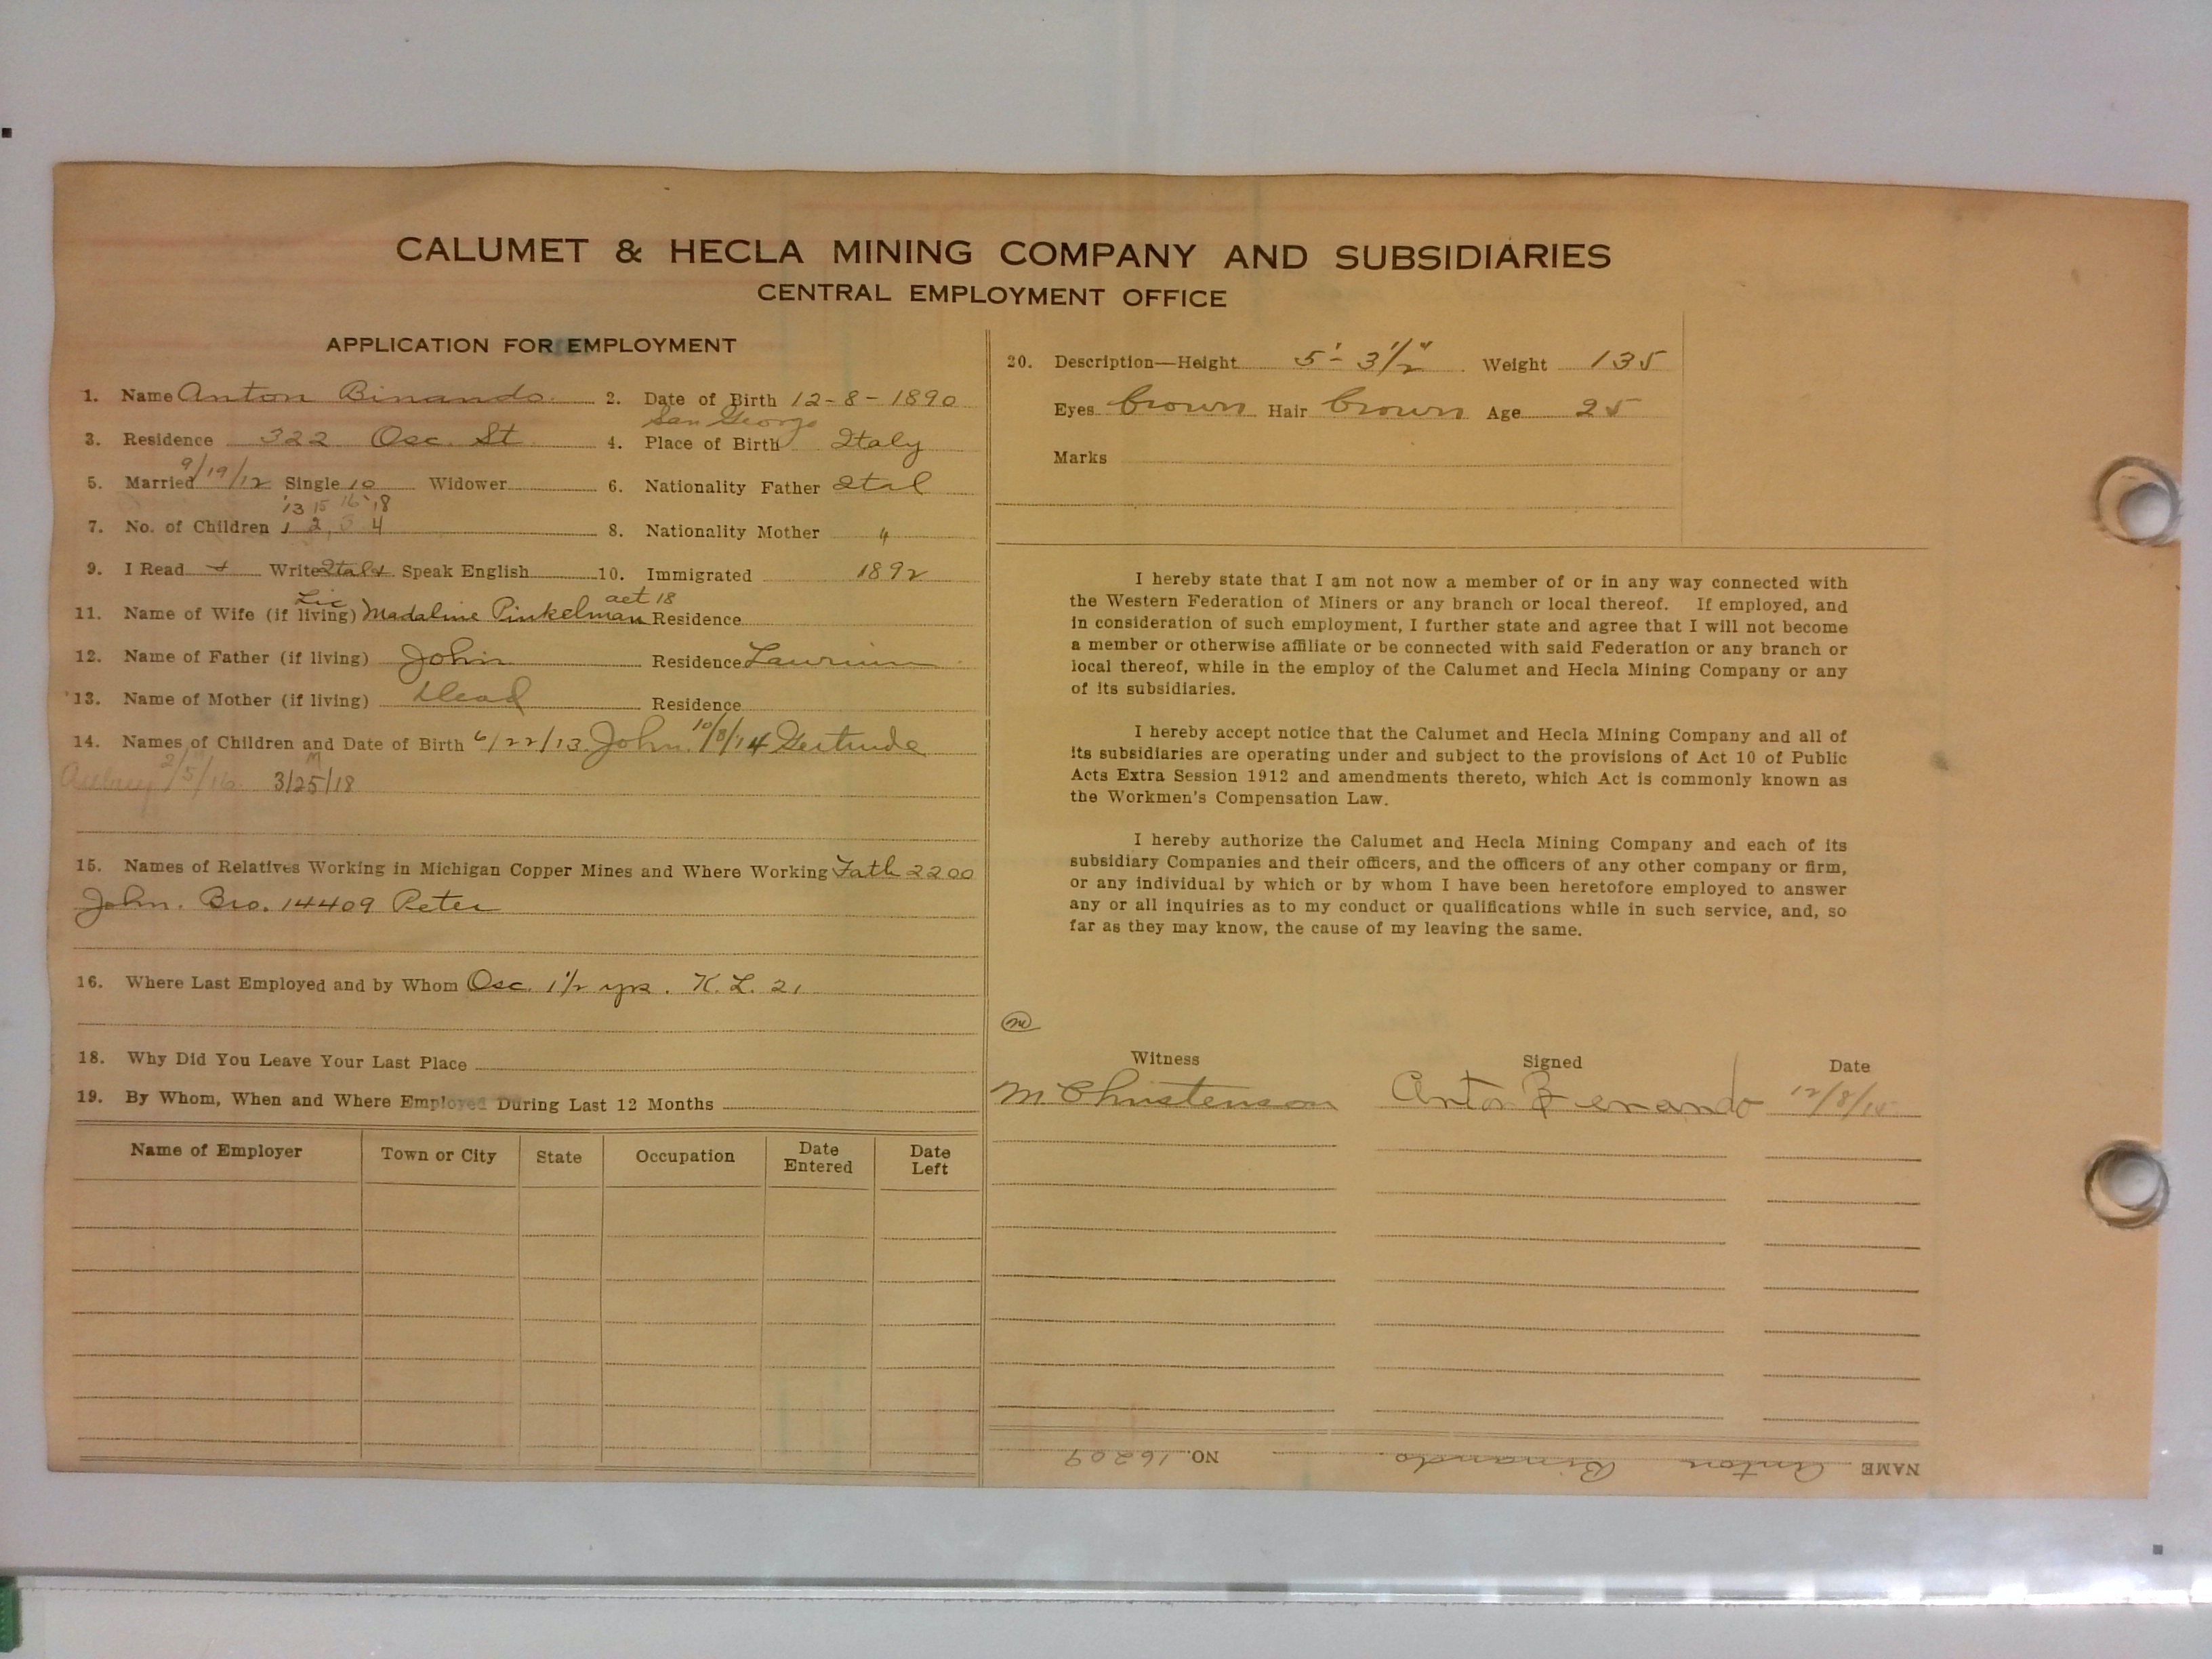 CALUMET & HECLA MINING COMPANY AND SUBSIDIARIES
CENTRAL EMPLOYMENT OFFICE
APPLICATION FOR EMPLOYMENT
1. Name Anton Binando 2. Date of Birth 12-8-1890
San George
3. Residence 322 Osc. St 4. Place of Birth Italy
5. Married 9/19/12 Single 10 Widower 6. Nationality Father Ital
'13 15 16 '18
7. No. of Children 1 2 3 4 8. Nationality Mother "
9. I Read + Write Ital + Speak English 10. Immigrated 1892
Lic aet 18
11. Name of Wife (if living) Madaline Pinkelman Residence
12. Name of Father (if living) John Residence Laurium
13. Name of Mother (if living) Dead Residence
14. Names of Children and Date of Birth 6/22/13 John. 10/8/14 Gertrude
2/5/16 M 3/25/18
15. Names of Relatives Working in Michigan Copper Mines and Where Working Fath 2200
John. Bro. 14409 Peter
16. Where Last Employed and by Whom Osc. 1 1/2 yrs. K. L. 21
18. Why Did You Leave Your Last Place
19. By Whom, When and Where Employed During Last 12 Months
Name of Employer Town or City State Occupation Date Entered Date Left
20. Description—Height 5'-3 1/2" Weight 135
Eyes brown Hair brown Age 25
Marks
I hereby state that I am not now a member of or in any way connected with
the Western Federation of Miners or any branch or local thereof. If employed, and
in consideration of such employment, I further state and agree that I will not become
a member or otherwise affiliate or be connected with said Federation or any branch or
local thereof, while in the employ of the Calumet and Hecla Mining Company or any
of its subsidiaries.
I hereby accept notice that the Calumet and Hecla Mining Company and all of
its subsidiaries are operating under and subject to the provisions of Act 10 of Public
Acts Extra Session 1912 and amendments thereto, which Act is commonly known as
the Workmen's Compensation Law.
I hereby authorize the Calumet and Hecla Mining Company and each of its
subsidiary Companies and their officers, and the officers of any other company or firm,
or any individual by which or by whom I have been heretofore employed to answer
any or all inquiries as to my conduct or qualifications while in such service, and, so
far as they may know, the cause of my leaving the same.
m
Witness Signed Date
M. Christenson Anton Benando 12/8/15
NAME Anton Binando. NO. 16209